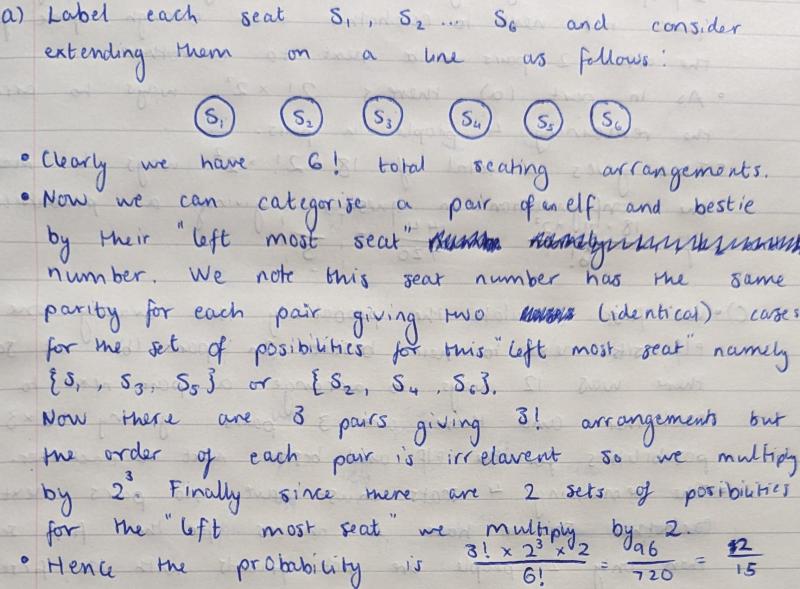 a) Label each seat S1, S2 ... S6 and consider
extending them on a line as follows:
S1 S2 S3 S4 S5 S6
• Clearly we have 6! total seating arrangements.
• Now we can categorise a pair of an elf and bestie
by their "left most seat"
number. We note this seat number has the same
parity for each pair giving two (identical) cases
for the set of posibilities for this "left most seat" namely
{S1, S3, S5} or {S2, S4, S6}.
Now there are 3 pairs giving 3! arrangements but
the order of each pair is irrelavent so we multiply
by 2^3. Finally since there are 2 sets of posibilities
for the "left most seat" we multiply by 2.
• Hence the probability is (3! × 2^3 × 2)/6! = 96/720 = 2/15